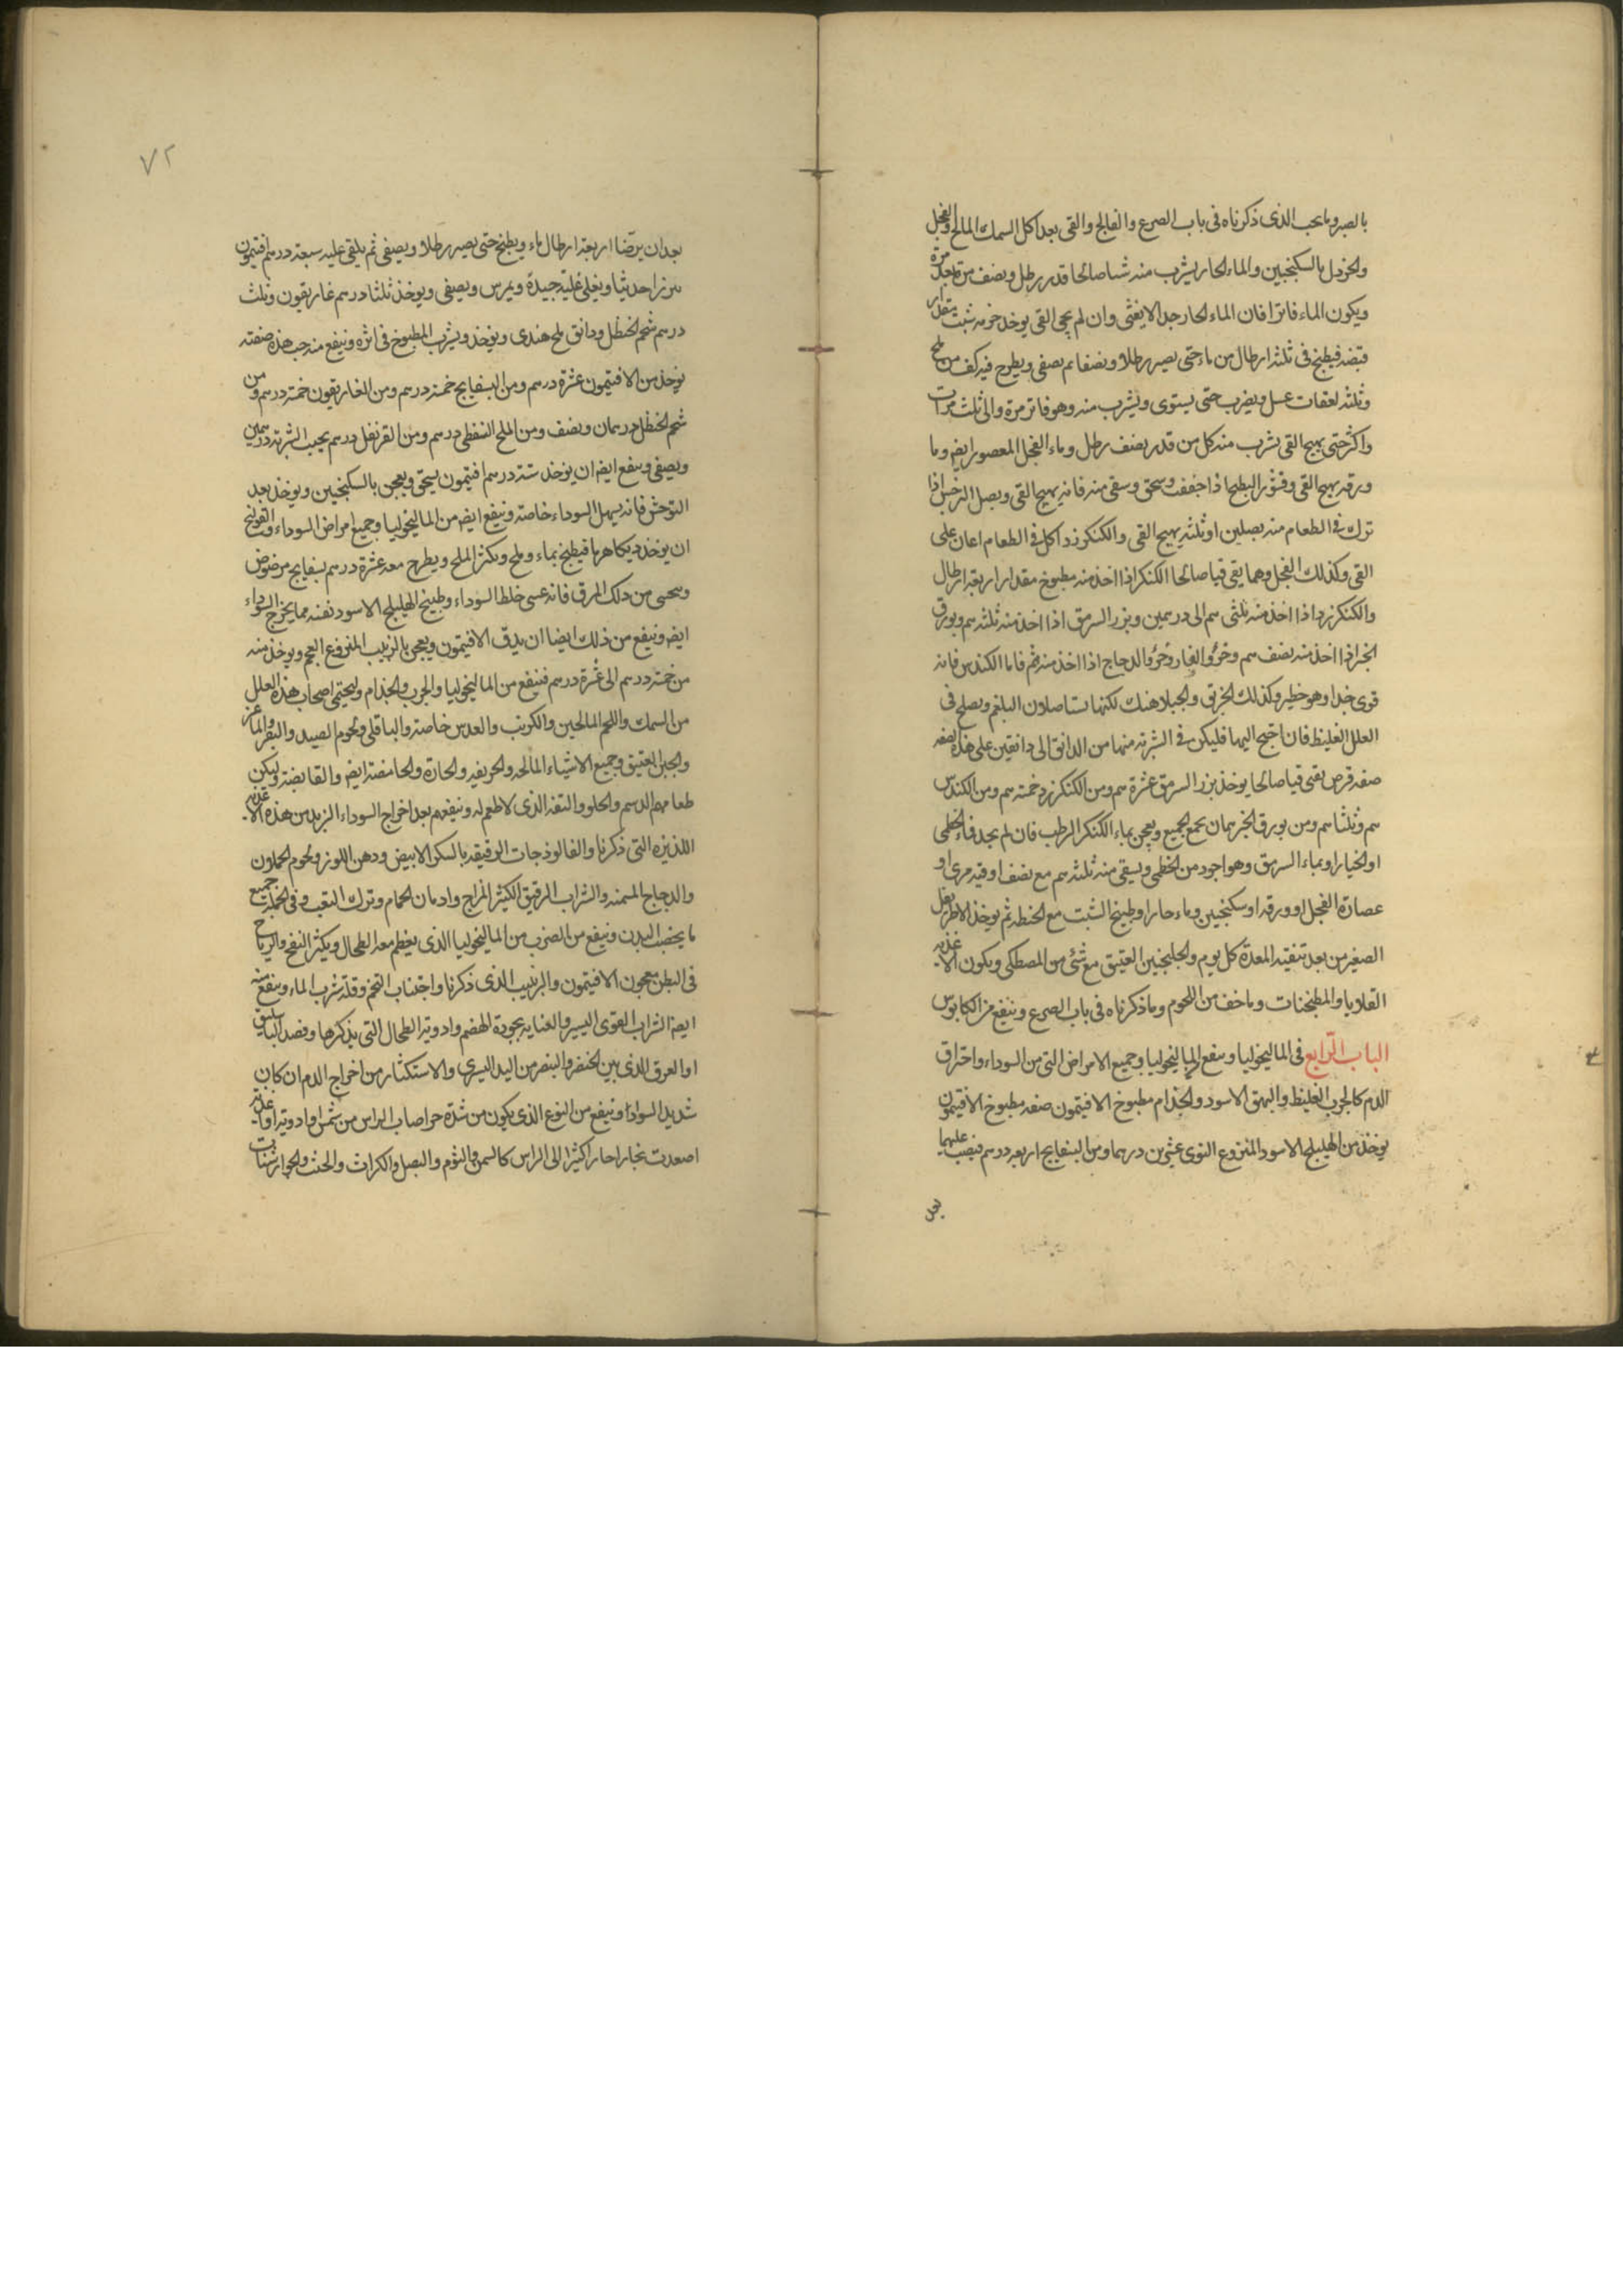 بالصبر وبالحب الذى ذكرناه فى باب الصرع والفالج والقى بعد اكل السمك المالح والفجل
والخردل بالسكنجبين والماء الحار يشرب منه شيا صالحا قدر رطل ونصف مرة بعد مرة
ويكون الماء فاترا فان الماء الحار جدا لا يغثى وان لم يجى القى يوخذ حزمه شبت مقدار
قبضه فيطبخ فى ثلثه ارطال من ماء حتى يصير رطلا ونصفا ثم يصفى ويطرح فيه كف من ملح
وثلثه لعقات عسل ويضرب حتى يستوى ويشرب منه وهو فاتر مرة والى ثلث مرات
واكثر حتى يهيج القى يشرب منه كل من قدر نصف رطل وماء الفجل المعصور ايض وما
ورقه يهيج القى وقشور البطيخ اذا جففت وسحق وسقى منه فانه يهيج القى وبصل النرجس اذا
ترك فى الطعام منه بصلين او ثلثه يهيج القى والكنكرزد اكل فى الطعام اعان على
القى وكذلك الفجل وهما يقى قيا صالحا الكنكر اذا اخذ منه مطبوخ مقدار اربعة ارطال
والكنكرزد اذا اخذ منه ثلثى سم الى درسمين وبزر السرمق اذا اخذ منه ثلثه سم وبورق
الخبز اذا اخذ منه نصف سم وخرؤ الفار وخرؤ الدجاج اذا اخذ منه سم فاما الكندس فانه
قوى جدا وهو خطير وكذلك الخربق والجبلاهنك لكنها يستاصلان البلغم ويصلح فى
العلل الغليظ فان احتج اليهما فليكن فى الشربة منهما من الدانق الى دانقين على هذه الصفه
صفه قرص يقى قيا صالحا يوخذ بزر السرمق عشرة سم ومن الكنكرزد خمسه سم ومن الكندس
سم وثلثا سم ومن بورق الخبز سمان يجمع الجميع ويعجن بماء الكنكر الرطب فان لم يجد فماء الخطمى
او الخيار او بماء السرمق وهو اجود من الخطمى ويسقى منه ثلثه سم مع نصف اوقيه مرى او
عصارة الفجل او ورقه او سكنجبين وماء حارا وطبيخ الشبت مع الحنطه ثم يوخذ الاطريفل
الصغير من بعد تنقية المعدة كل يوم والجلنجبين العتيق مع شئ من المصطكى ويكون الاغذيه
القلايا والمطجنات وما خف من اللحوم وما ذكرناه فى باب الصرع وينفع من الكابوس
الباب الرابع فى الماليخوليا وينفع الماليخوليا وجميع الامراض التى من السوداء واحتراق
الدم كالجرب الغليظ والبهق الاسود والجذام مطبوخ الافتيمون صفه مطبوخ الافتيمون
يوخذ من الهليلج الاسود المنزوع النوى عشرين درهما ومن البسفايج اربعه درسم فيصب عليهما
بعد
٧٢
بعد ان يرضا اربعة ارطال ماء ويطبخ حتى يصير رطلا ويصفى ثم يلقى عليه سبعة درسم افتيمون
ويغلى غلية جيدة ويمرس ويصفى ويوخذ ثلثا درسم غاريقون وثلث
درسم شحم الحنظل ودانق ملح هندى ويوخذ ويشرب المطبوخ فى اثره وينفع منه حب هذه صفته
يوخذ من الافتيمون عشرة درسم ومن البسفايج خمسة درسم ومن الغاريقون خمسة درسم ومن
شحم الحنظل درسمان ونصف ومن الملح النفطى درسم ومن القرنفل درسم يحبب الشربة درسمين
ويصفى وينفع ايض ان يوخذ ستة درسم افتيمون يسحق ويعجن بالسكنجبين ويوخذ بعد
التوحش فانه يسهل السوداء خاصة وينفع ايض من الماليخوليا وجميع امراض السوداء والقولنج
ان يوخذ ديكا هرما فيطبخ بماء وملح ويكثر الملح ويطرح معه عشرة درسم بسفايج مرضوض
ويحسى من ذلك المرق فانه عسى خلط السوداء وطبيخ الهليلج الاسود نفسه مما يخرج السوداء
ايض وينفع من ذلك ايضا ان يدق الافتيمون ويعجن بالزبيب المنزوع العجم ويوخذ منه
من خمسة درسم الى عشرة درسم فينفع من الماليخوليا والجرب والجذام وليحتمى اصحاب هذه العلل
من السمك واللحم المالحين والكرنب والعدس خاصة والباقلى ولحوم الصيد والبقر والماعز
والجبن العتيق وجميع الاشياء المالحه والحريفه والحارة والحامضة ايض والقابضة وليكن
طعامهم الدسم والحلو والتفه الذى لا طعم له وينفعهم بعد اخراج السوداء الزيد من هذه الاغذيه
اللذيذه التى ذكرنا والفالوذجات الرقيقه بالسكر الابيض ودهن اللوز ولحوم الحملان
والدجاج المسمنه والشراب الرقيق الكثير المزاج وادمان الحمام وترك التعب وفى الجملة جميع
ما يخصب البدن وينفع من الضرب من الماليخوليا الذى يعظم معه الطحال ويكثر النفخ والرياح
فى البطن معجون الافتيمون والزبيب الذى ذكرنا واجتناب التخم وقلة شرب الماء وينفع منه
ايض الشراب القوى اليسير والعنايه بجودة الهضم وادوية الطحال التى يذكرها وفصد الباسليق
او العرق الذى بين الخنصر والبنصر من اليد اليسرى والاستكثار من اخراج الدم ان كان
شديد السواد او ينفع من النوع الذى يكون من شدة حر اصاب الراس من شمس او ادوية او اغذيه
اصعدت بخارا حارا كثيرا الى الراس كالسمن والثوم والبصل والكراث